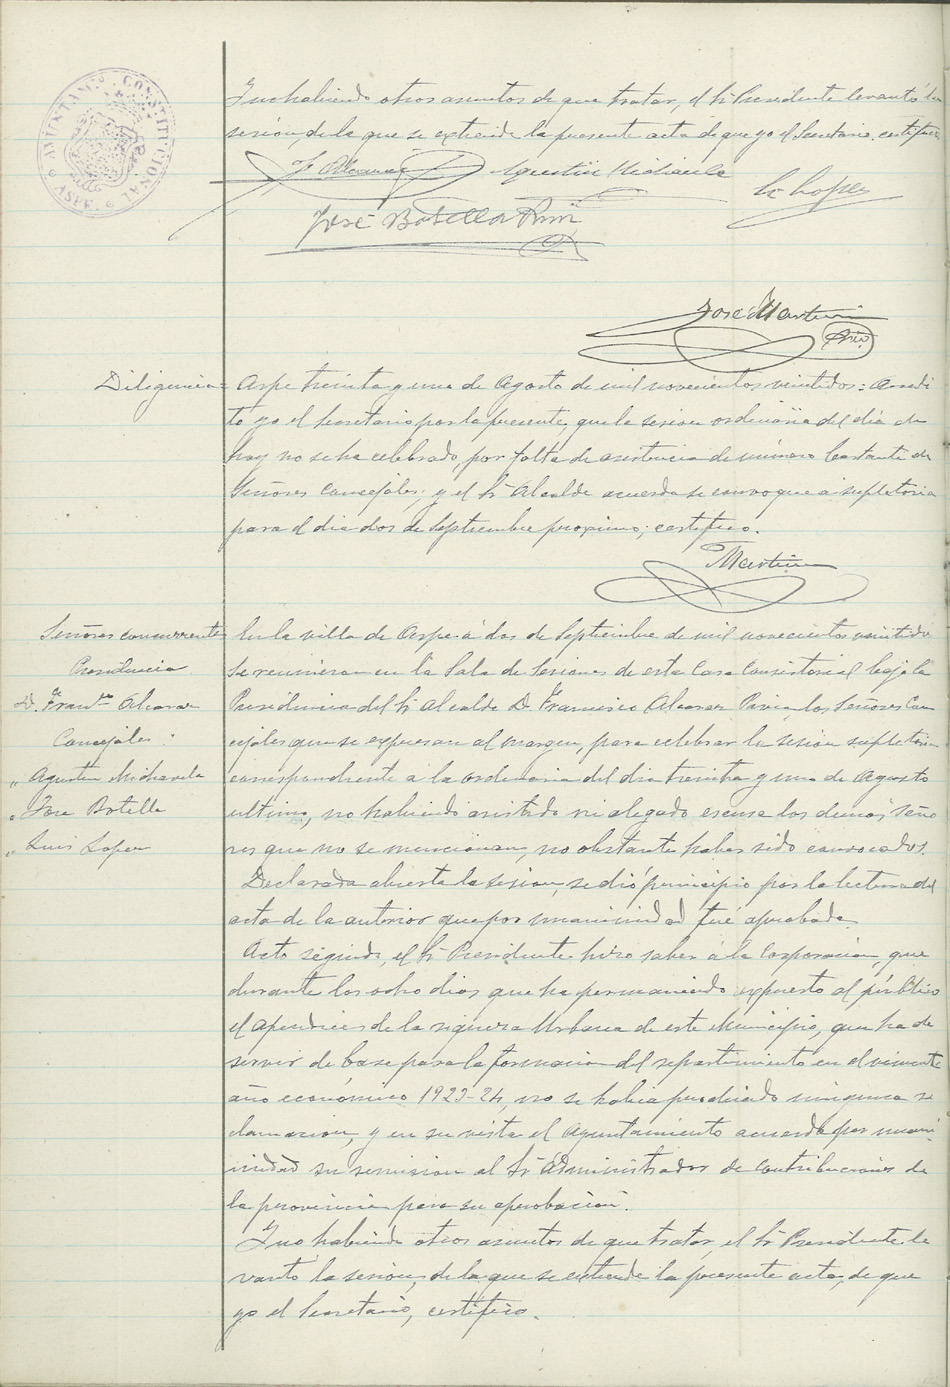 AYUNTAMTO CONSTITUCIONAL ASPE
Y no habiendo otros asuntos de que tratar, el Sr Presidente levantó la
sesión de la que se extiende la presente acta de que yo el Secretario certifico
F Alcaraz Agustin Michavila L. Lopez
José Botella
José Martin
Srio.
Diligencia = Aspe treinta y uno de Agosto de mil novecientos veintidos: Acredi
to yo el Secretario por la presente, que la sesion ordinaria del dia de
hoy no se ha celebrado, por falta de asistencia de número bastante de
Señores Concejales; y el Sr Alcalde acuerda se convoque a supletoria
para el dia dos de Septiembre proximo; certifico.
Martin
Señores concurrentes
Presidencia
D. Franco Alcaraz
Concejales:
" Agustin Michavila
" Jose Botella
" Luis Lopez
En la villa de Aspe á dos de Septiembre de mil novecientos veintidos
se reunieron en la Sala de Sesiones de esta Casa Consistorial bajo la
Presidencia del Sr Alcalde D. Francisco Alcaraz los Señores Con
cejales que se expresan al margen, para celebrar la sesión supletoria
correspondiente a la ordinaria del dia treinta y uno de Agosto
ultimo, no habiendo asistido ni alegado escusa los demas Seño
res que no se mencionan, no obstante haber sido convocados.
Declarada abierta la sesion, se dió principio por la lectura del
acta de la anterior que por unanimidad fué aprobada.
Acto seguido, el Sr Presidente hizo saber á la Corporación, que
durante los ocho dias que ha permanecido expuesto al público
el apendice de la riqueza Urbana de este Municipio, que ha de
servir de base para la formación del repartimiento en el viniente
año económico 1923-24, no se habia producido ninguna re
clamacion, y en su vista el Ayuntamiento acuerda por unani
midad su remision al Sr Administrador de Contribuciones de
la provincia para su aprobación.
Y no habiendo otros asuntos de que tratar, el Sr Presidente le
vantó la sesión, de la que se extiende la presente acta, de que
yo el Secretario, certifico.